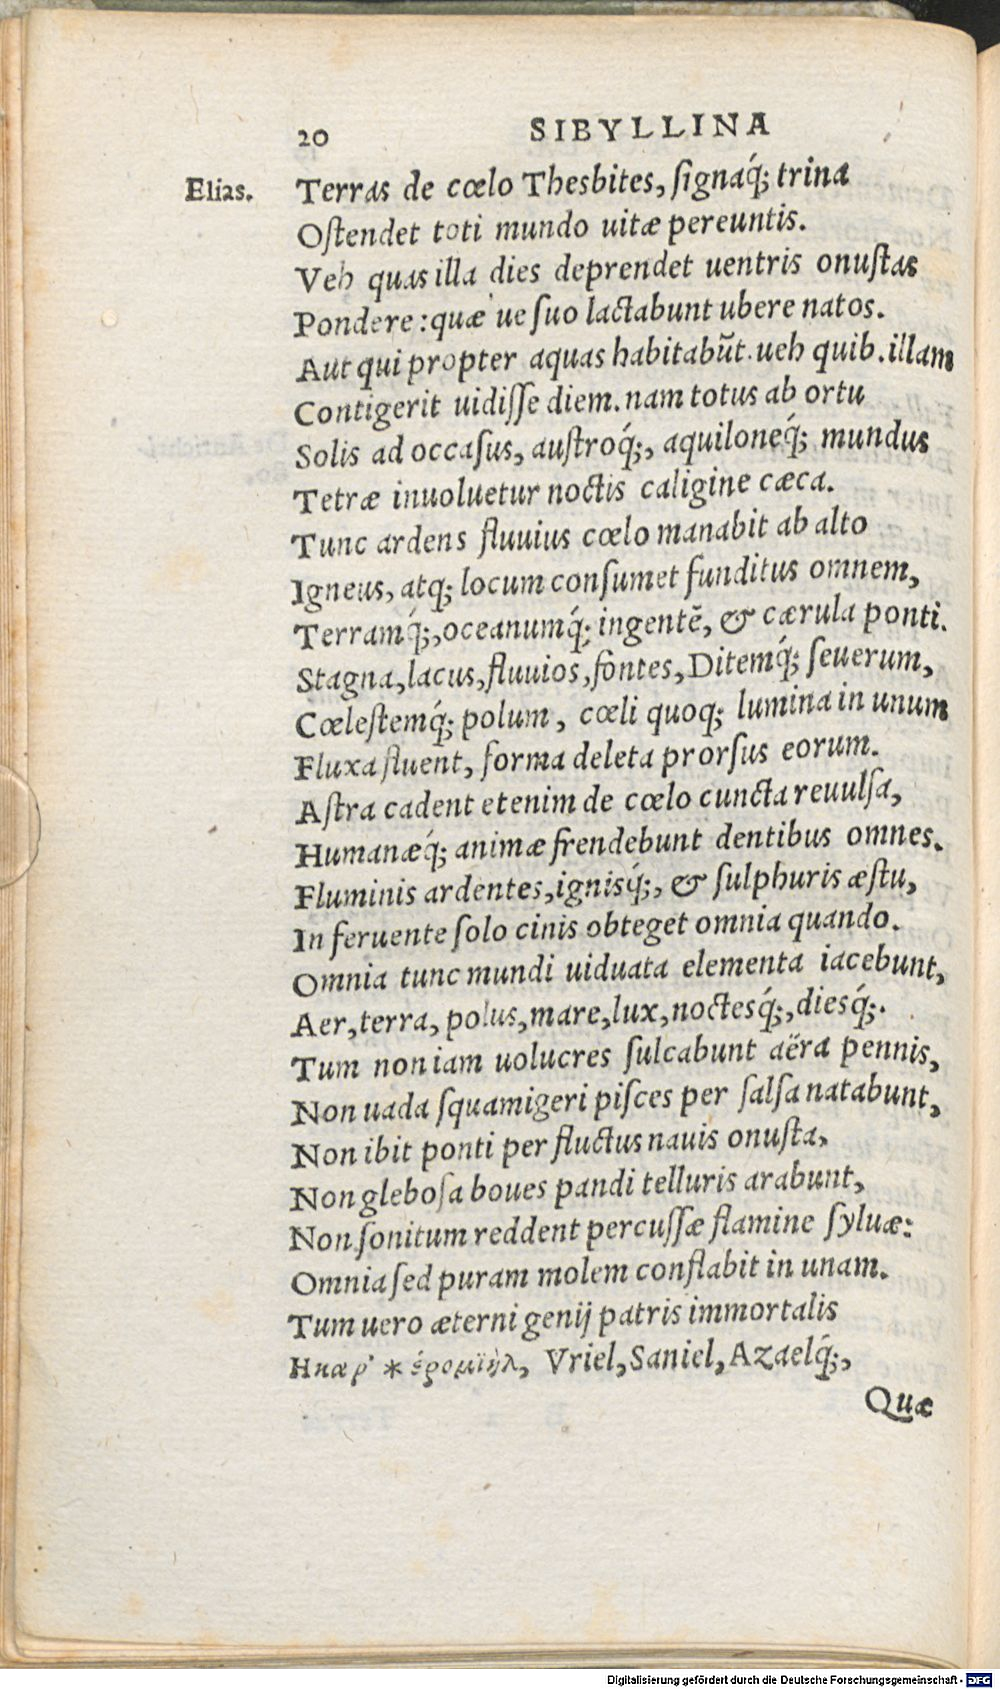 20 SIBYLLINA
Elias. Terras de cœlo Thesbites, ſignaq́; trina
Oſtendet toti mundo uitæ pereuntis.
Veh quas illa dies deprendet uentris onuſtas
Pondere: quæ ue ſuo lactabunt ubere natos.
Aut qui propter aquas habitabũt. ueh quib. illam
Contigerit uidiſſe diem. nam totus ab ortu
Solis ad occaſus, auſtroq́;, aquiloneq́; mundus
Tetræ inuoluetur noctis caligine cæca.
Tunc ardens fluuius cœlo manabit ab alto
Igneus, atq; locum conſumet funditus omnem,
Terramq́;, oceanumq́; ingentẽ, & cærula ponti.
Stagna, lacus, fluuios, fontes, Ditemq́; ſeuerum,
Cœleſtemq́; polum, cœli quoq; lumina in unum
Fluxa fluent, forma deleta prorſus eorum.
Aſtra cadent etenim de cœlo cuncta reuulſa,
Humanæq́; animæ frendebunt dentibus omnes.
Fluminis ardentes, ignisq́;, & ſulphuris æſtu,
In feruente ſolo cinis obteget omnia quando.
Omnia tunc mundi uiduata elementa iacebunt,
Aer, terra, polus, mare, lux, noctesq́;, diesq́;.
Tum non iam uolucres ſulcabunt aëra pennis,
Non uada ſquamigeri piſces per ſalſa natabunt,
Non ibit ponti per fluctus nauis onuſta,
Non gleboſa boues pandi telluris arabunt,
Non ſonitum reddent percuſſæ flamine ſyluæ:
Omnia ſed puram molem conflabit in unam.
Tum uero æterni genij patris immortalis
* Vriel, Saniel, Azaelq́;,
Quæ
Digitalisierung gefördert durch die Deutsche Forschungsgemeinschaft - DFG